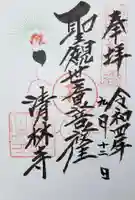 奉拝
令和四年九月十三日
聖観世音菩薩
清林寺